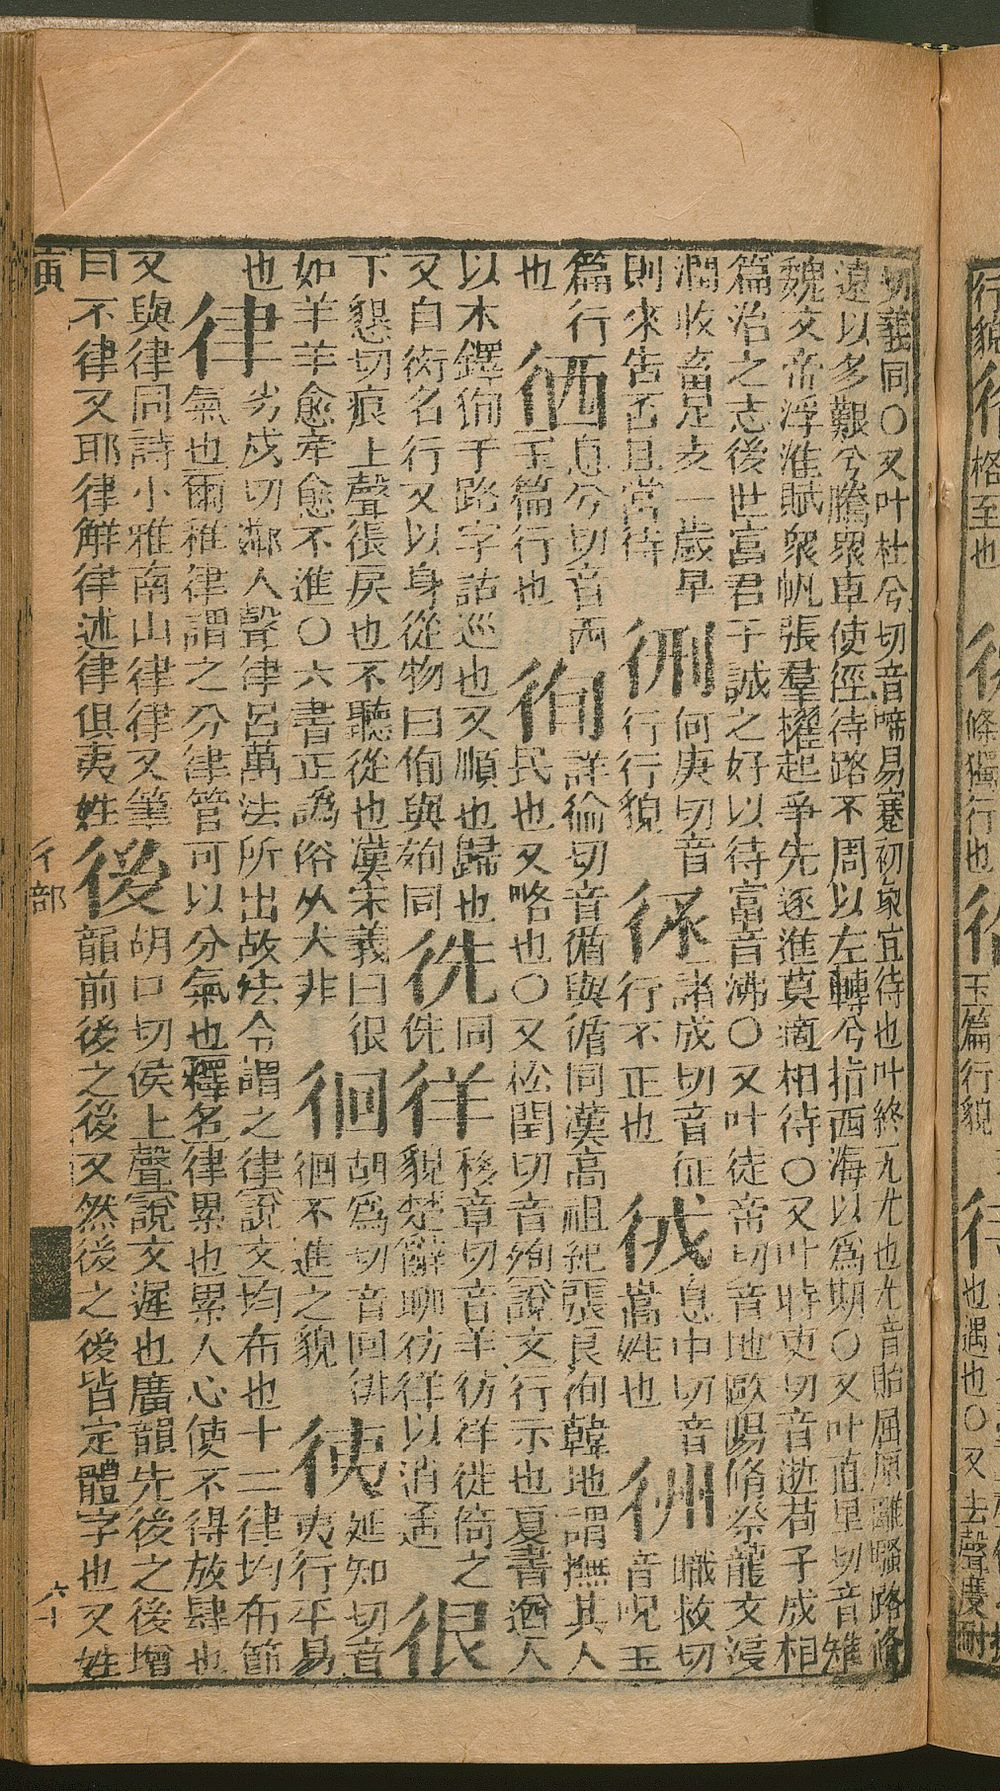 切義同○又叶杜兮切音啼易蹇初象宜待也叶終无尤也尤音貽屈原離騷路脩
遠以多艱兮騰眾車使徑待路不周以左轉兮指西海以爲期○又叶直里切音雉
魏文帝浮淮賦眾帆張羣櫂起爭先逐進莫適相待○又叶時吏切音逝荀子成相
篇治之志後世富君子誠之好以待富音沸○又叶徒帝切音地歐陽脩祭龍文浸
潤收畜足支一歲旱
則來告否且當待
𢓊
何庚切音
行行貌
諸成切音征
行不正也
息中切音
嵩姓也
㣙
職救切
音呪玉
篇行
也
徆
息兮切音西
玉篇行也
徇
詳倫切音循與循同漢高祖紀張良徇韓地謂撫其人
民也又略也○又松閏切音殉說文行示也夏書遒人
以木鐸徇于路字詁巡也又順也歸也
又自衒名行又以身從物曰徇與殉同
𢓠
同
侁
徉
移章切音羊彷徉徙倚之
貌楚辭聊彷徉以消遙
很
下懇切痕上聲很戾也不聽從也漢宋義曰很
如羊羊愈牽愈不進○六書正譌俗从犬非
徊
胡爲切音回徘
徊不進之貌
徛
延知切音
夷行平易
也
律
劣戍切鄰入聲律呂萬法所出故法令謂之律說文均布也十二律均布節
氣也爾雅律謂之分律管可以分氣也釋名律累也累人心使不得放肆也
又與律同詩小雅南山律律又筆
曰不律又耶律觧律述律俱夷姓
後
胡口切侯上聲說文遲也廣韻先後之後增
韻前後之後又然後之後皆定體字也又姓
寅
彳部
六十